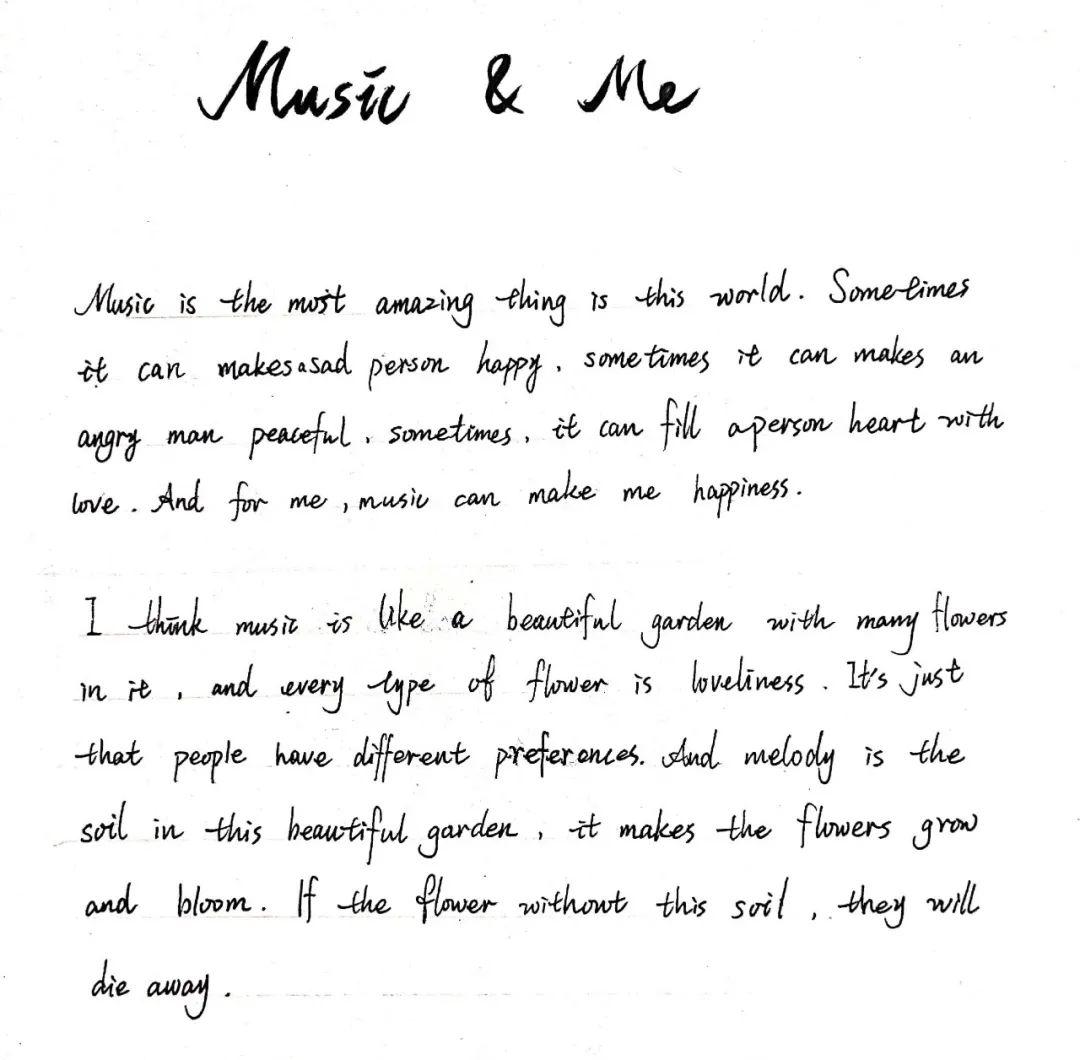 Music & Me
Music is the most amazing thing is this world. Sometimes
it can makes a sad person happy, sometimes it can makes an
angry man peaceful, sometimes, it can fill a person heart with
love. And for me, music can make me happiness.
I think music is like a beautiful garden with many flowers
in it, and every type of flower is loveliness. It's just
that people have different preferences. And melody is the
soil in this beautiful garden, it makes the flowers grow
and bloom. If the flower without this soil, they will
die away.